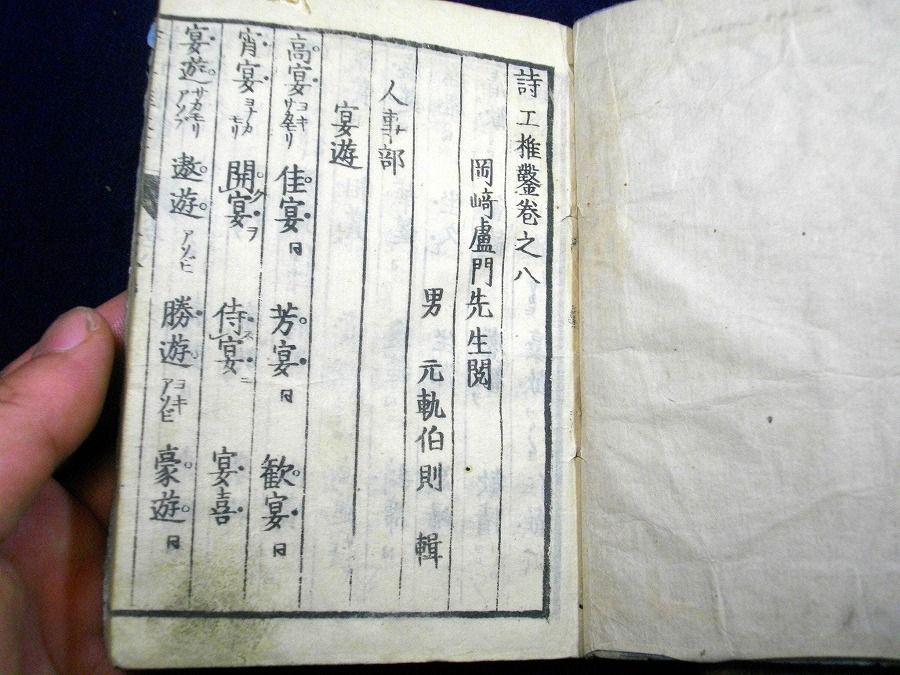 詩工椎鑿卷之八
岡﨑盧門先生閲
男 元軌伯則 輯
人事部
宴遊
高宴ヨキサカモリ 佳宴同 芳宴同 歓宴同
宵宴ヨナカモリ 開宴クヲ 侍宴スニ 宴喜
宴遊サカモリアソブ 遨遊アソビ 勝遊ヨキアソビ 豪遊同